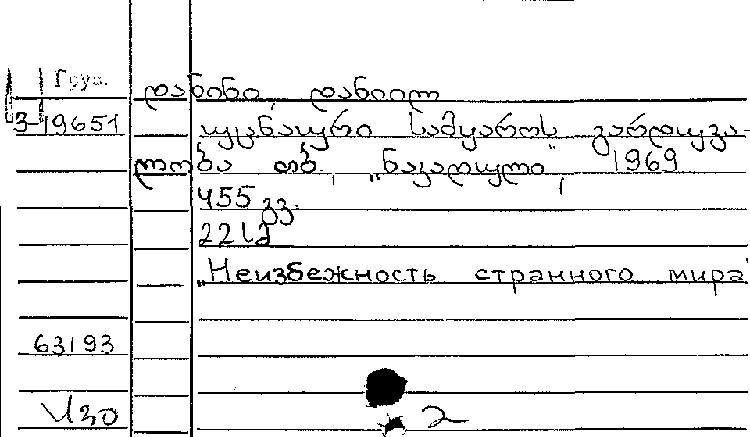 Груз.
დანინი, დანიილ
3-19651
უცნაური სამყაროს გარდუვა-
ლობა თბ., „ნაკადული", 1969
455 გვ.
2212
„Неизбежность странного мира"
63193
2